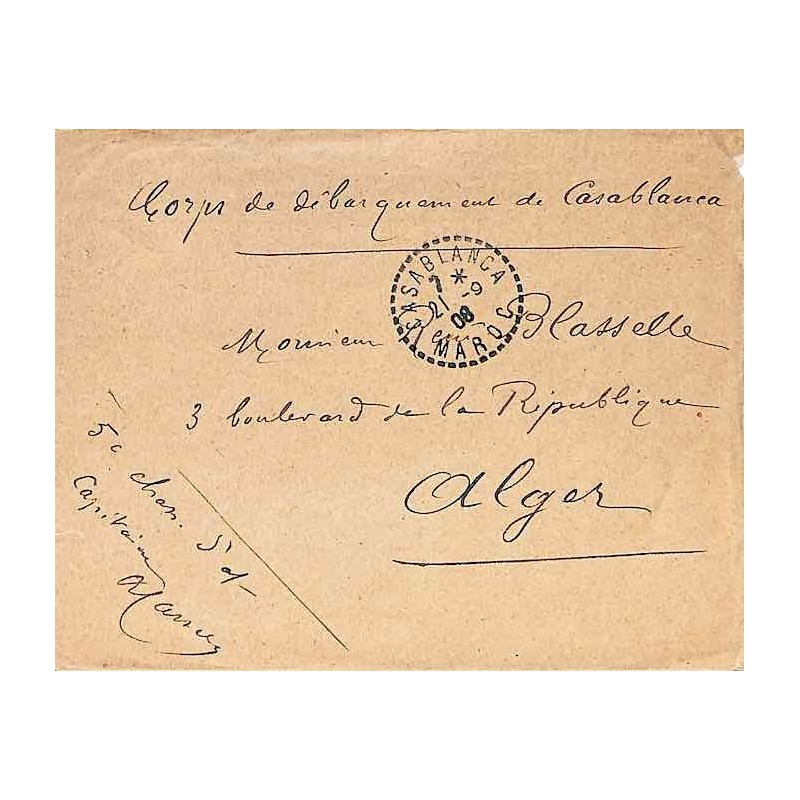 Corps de débarquement de Casablanca
CASABLANCA
*
21 -9
08
MAROC
Monsieur René Blasselle
3 boulevard de la République
Alger
5e chas. d'af
Capitaine